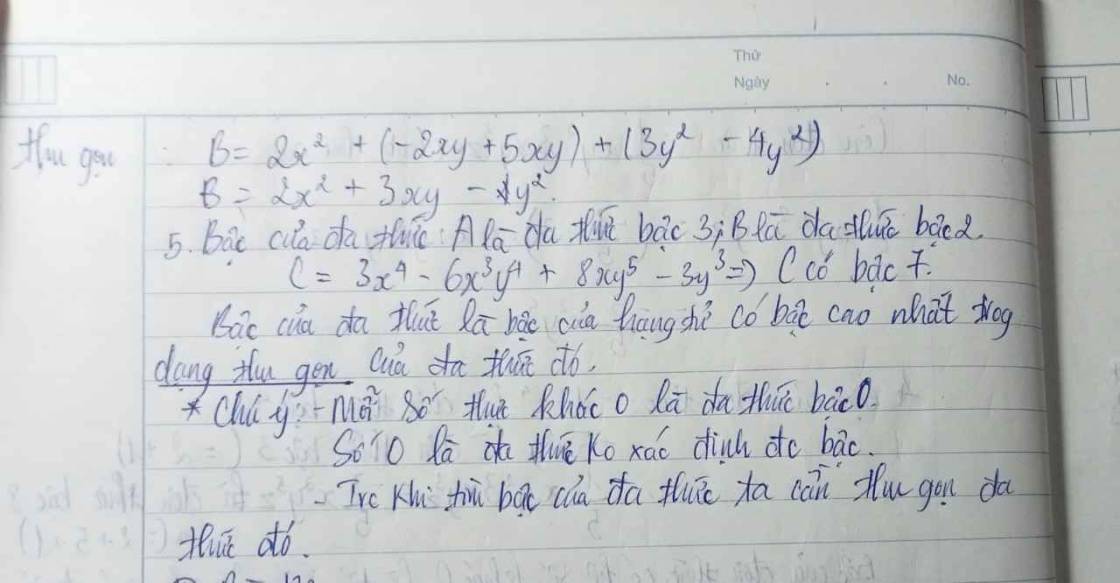 Thứ
Ngày . . No.
thu gọn
B = 2x² + (-2xy + 5xy) + (3y² - 4y²)
B = 2x² + 3xy - 1y².
5. Bậc của đa thức: A là đa thức bậc 3; B là đa thức bậc 2.
C = 3x⁴ - 6x³y⁴ + 8xy⁵ - 3y³ => C có bậc 7.
Bậc của đa thức là bậc của hạng tử có bậc cao nhất trog
dạng thu gọn của đa thức đó.
* Chú ý: - Mỗi số thực khác 0 là đa thức bậc 0.
Số 0 là đa thức ko xác định đc bậc.
- Trc khi tìm bậc của đa thức ta cần thu gọn đa
thức đó.